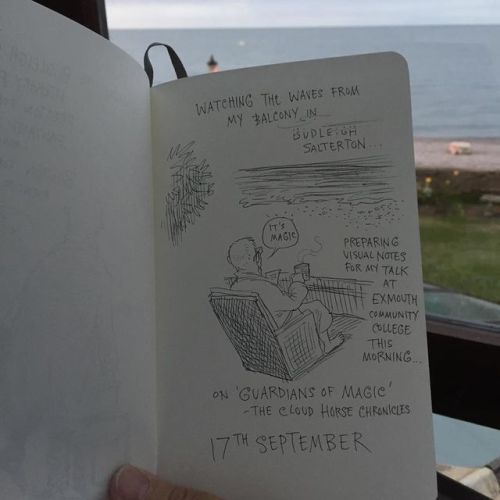 WATCHING THE WAVES FROM
MY BALCONY IN
BUDLEIGH
SALTERTON...
IT'S
MAGIC
PREPARING
VISUAL NOTES
FOR MY TALK
AT
EXMOUTH
COMMUNITY
COLLEGE
THIS
MORNING...
ON 'GUARDIANS OF MAGIC'
- THE CLOUD HORSE CHRONICLES
17TH SEPTEMBER